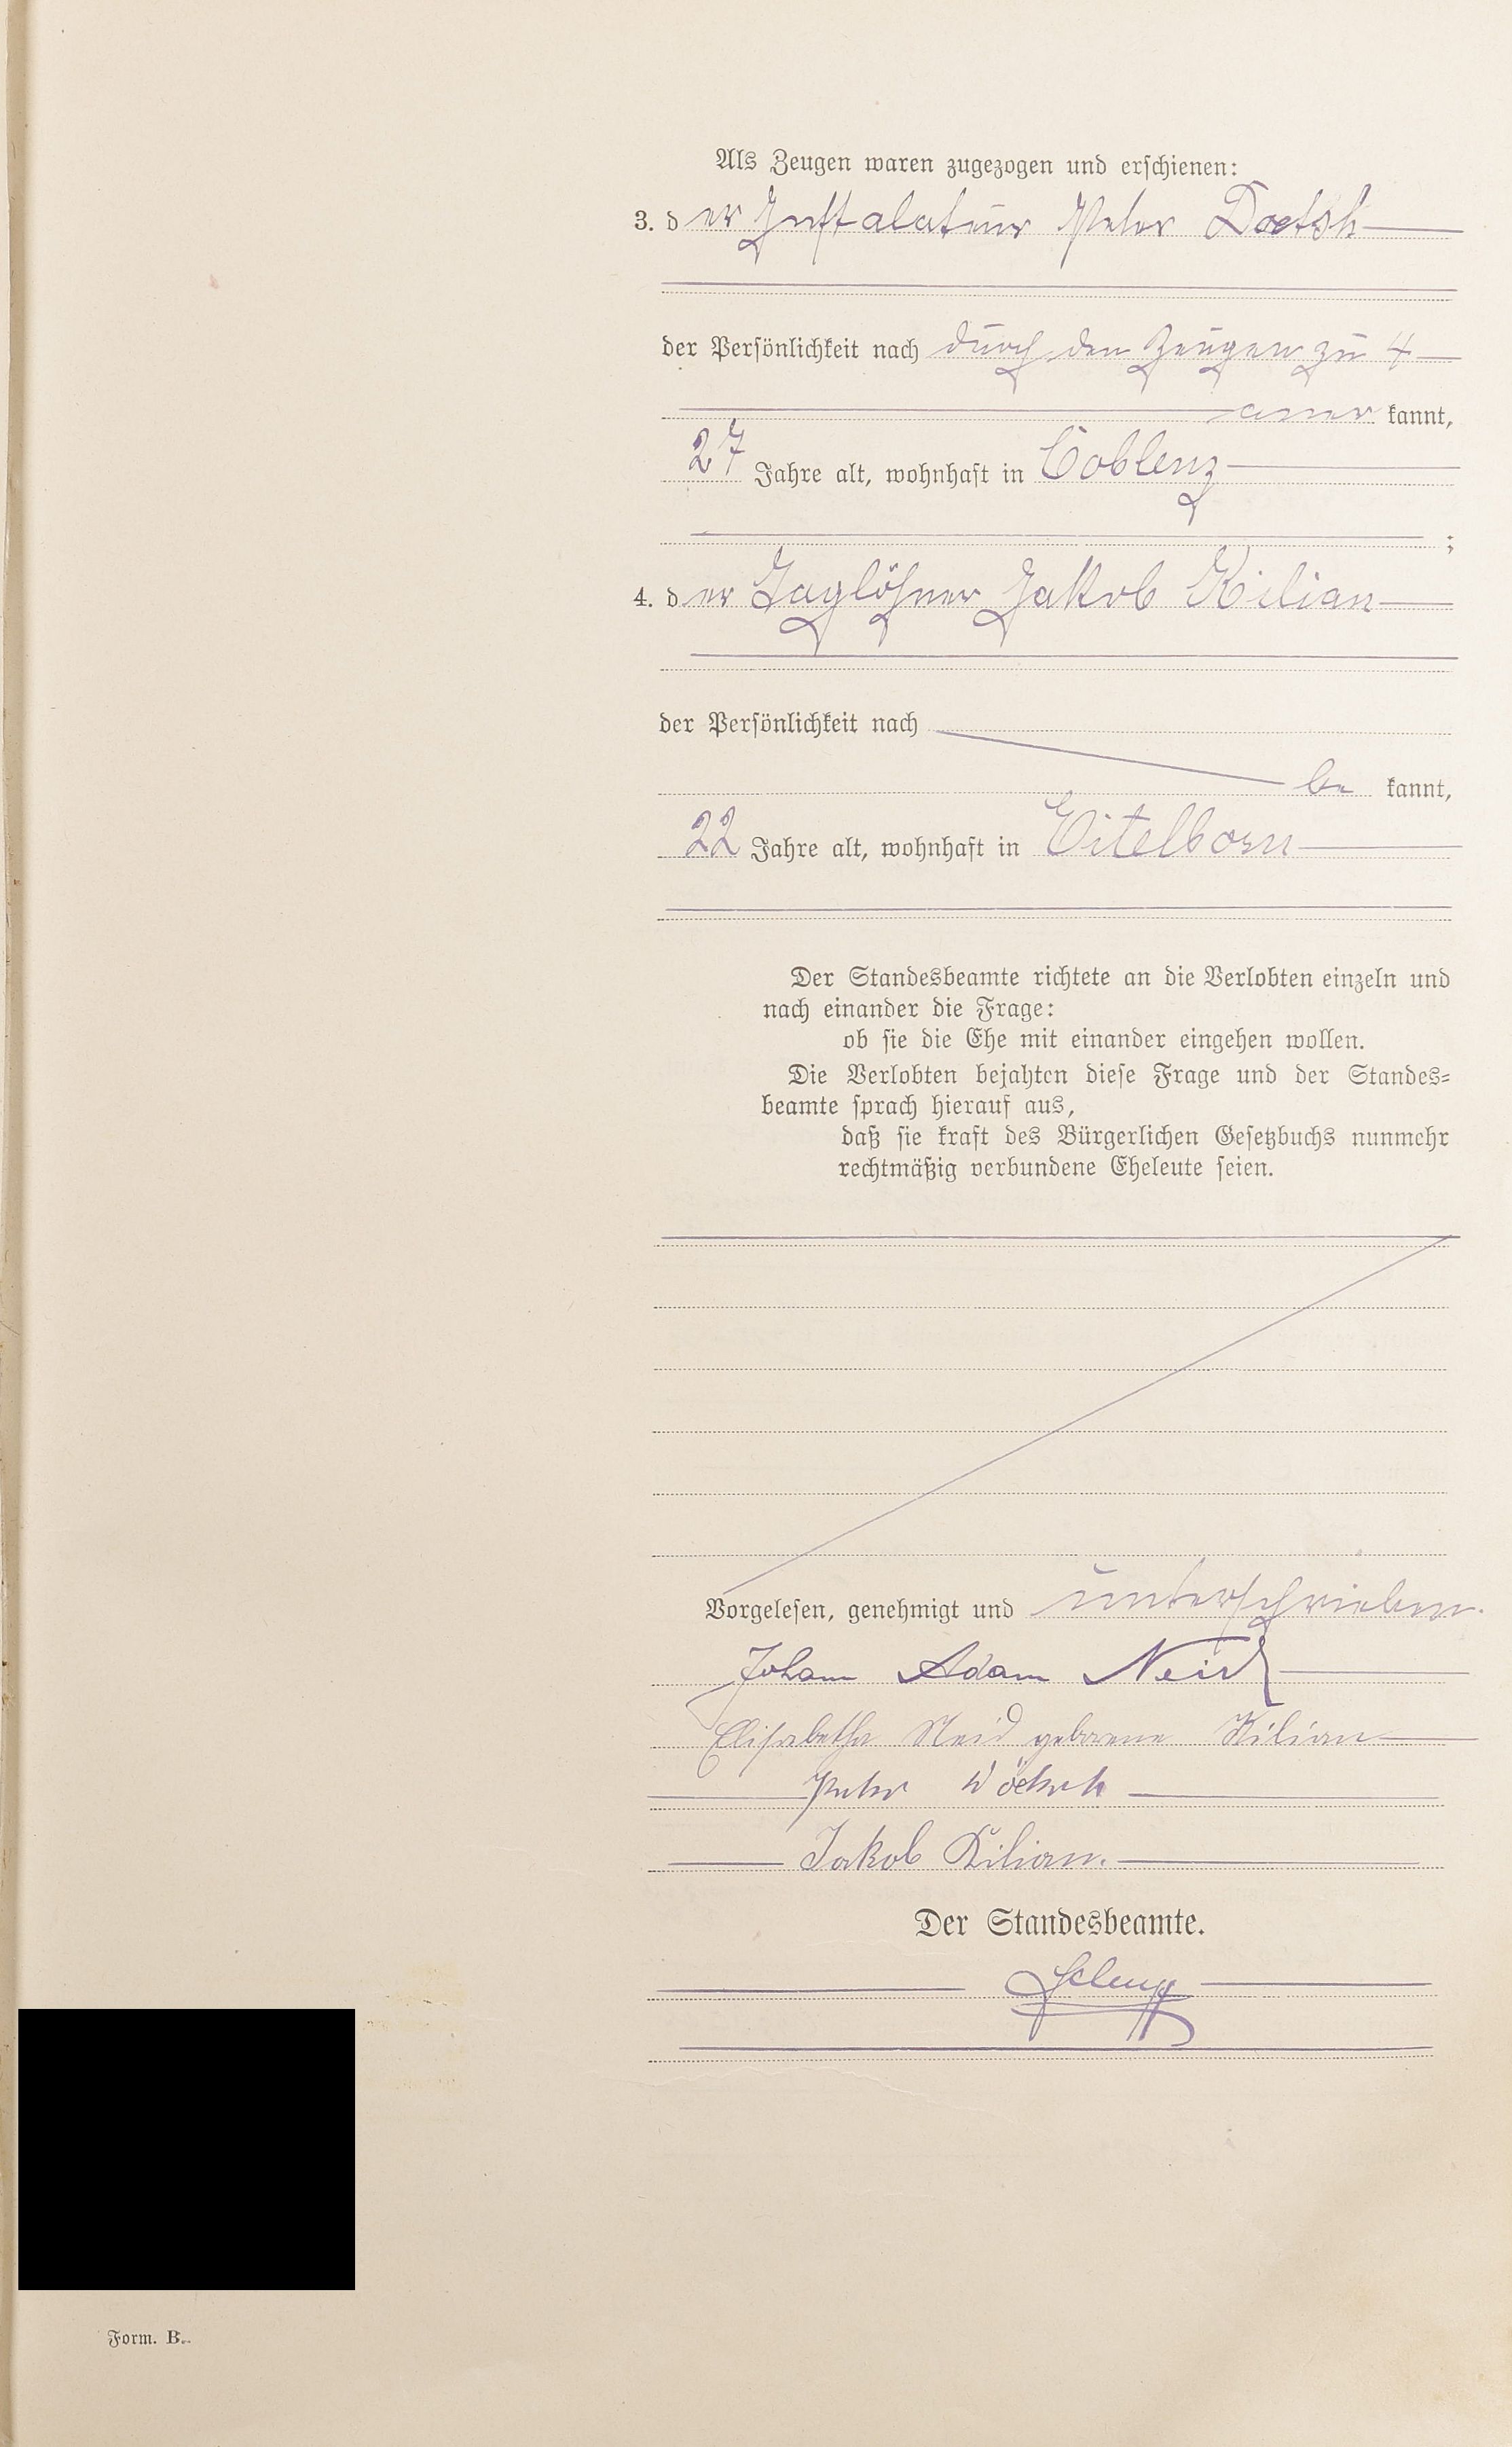 Als Zeugen waren zugezogen und erschienen:
3. der Instalateur Peter Doetsh
der Persönlichkeit nach durch den Zeugen zu 4
aner kannt,
27 Jahre alt, wohnhaft in Coblenz
;
4. der Taglöhner Jakob Kilian
der Persönlichkeit nach
be kannt,
22 Jahre alt, wohnhaft in Eitelborn
Der Standesbeamte richtete an die Verlobten einzeln und
nach einander die Frage:
ob sie die Ehe mit einander eingehen wollen.
Die Verlobten bejahten diese Frage und der Standes=
beamte sprach hierauf aus,
daß sie kraft des Bürgerlichen Gesetzbuchs nunmehr
rechtmäßig verbundene Eheleute seien.
Vorgelesen, genehmigt und unterschrieben.
Johann Adam Neid
Elisabetha Neid geborene Kilian
Peter
Jakob Kilian.
Der Standesbeamte.
Form. B.